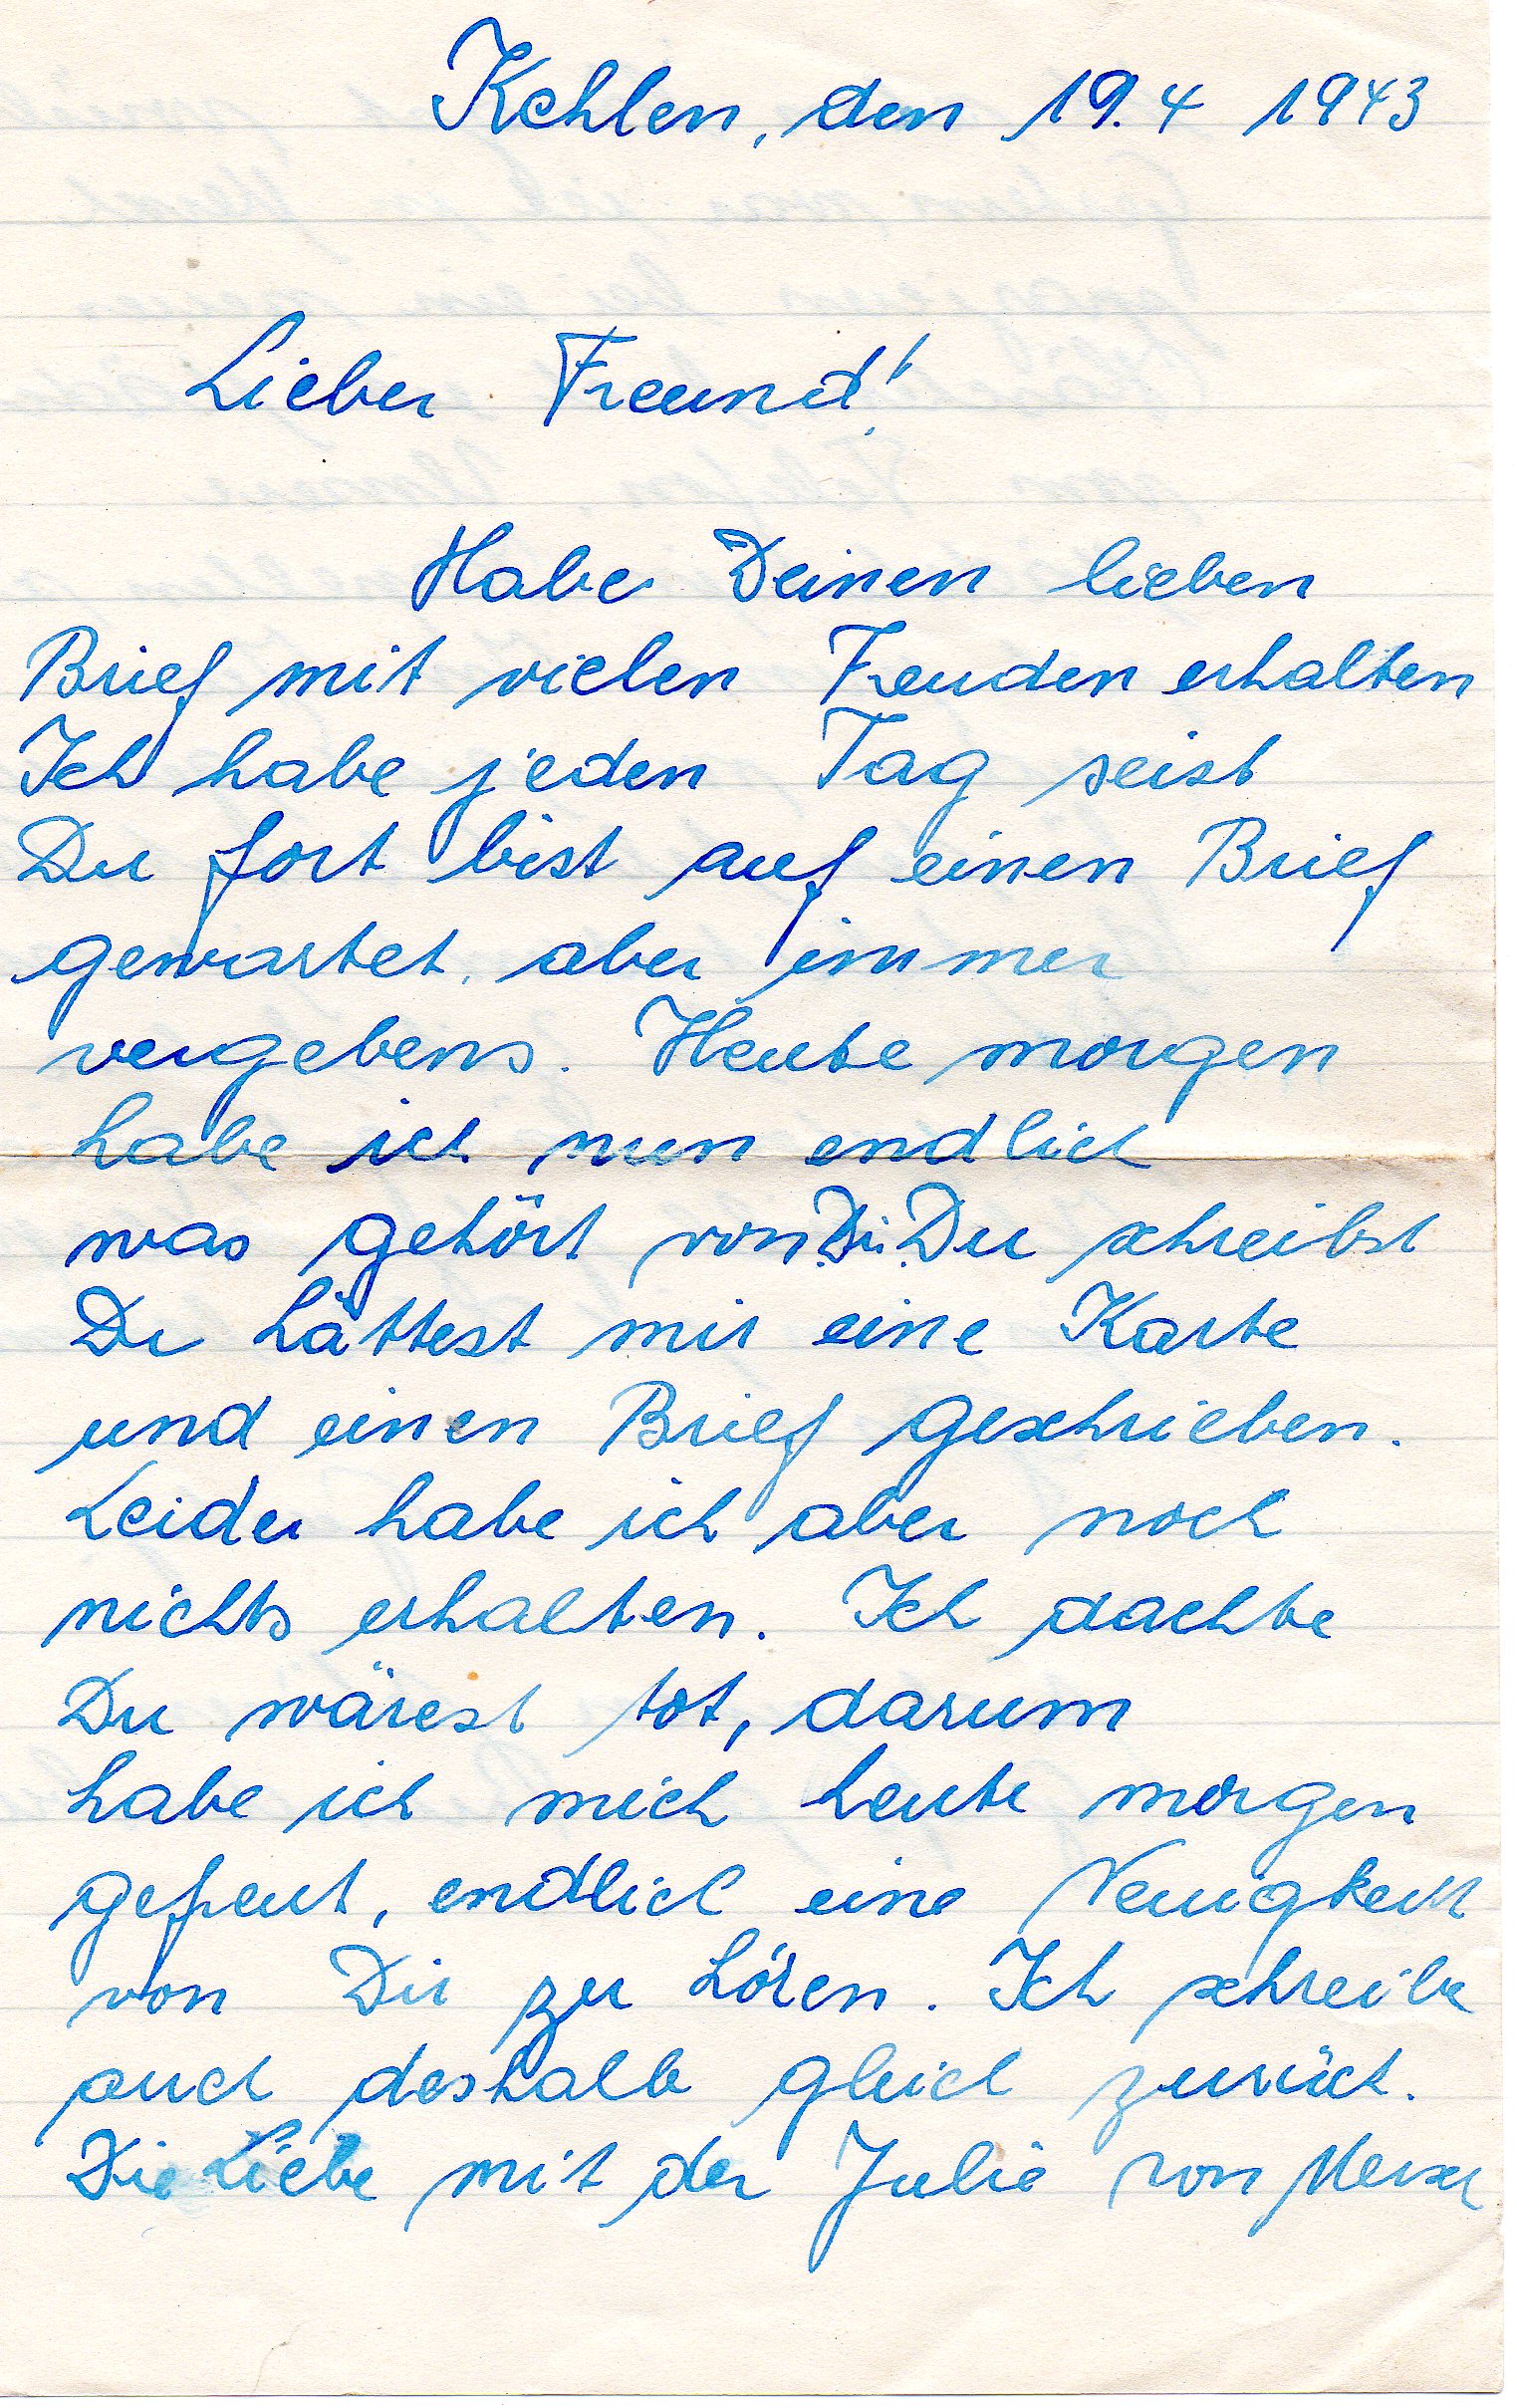 Kehlen, den 19.4 1943
Lieber Freund!
Habe Deinen lieben
Brief mit vielen Freuden erhalten
Ich habe jeden Tag seist
Du fort bist auf einen Brief
gewartet, aber immer
vergebens. Heute morgen
habe ich nun endlich
was gehört von Dir. Du schreibst
Du hättest mir eine Karte
und einen Brief geschrieben.
Leider habe ich aber noch
nichts erhalten. Ich dachte
Du wärest tot, darum
habe ich mich heute morgen
gefreut, endlich eine Neuigkeit
von Dir zu hören. Ich schreibe
auch deshalb gleich zurück.
Die Liebe mit der Julie von Mersch